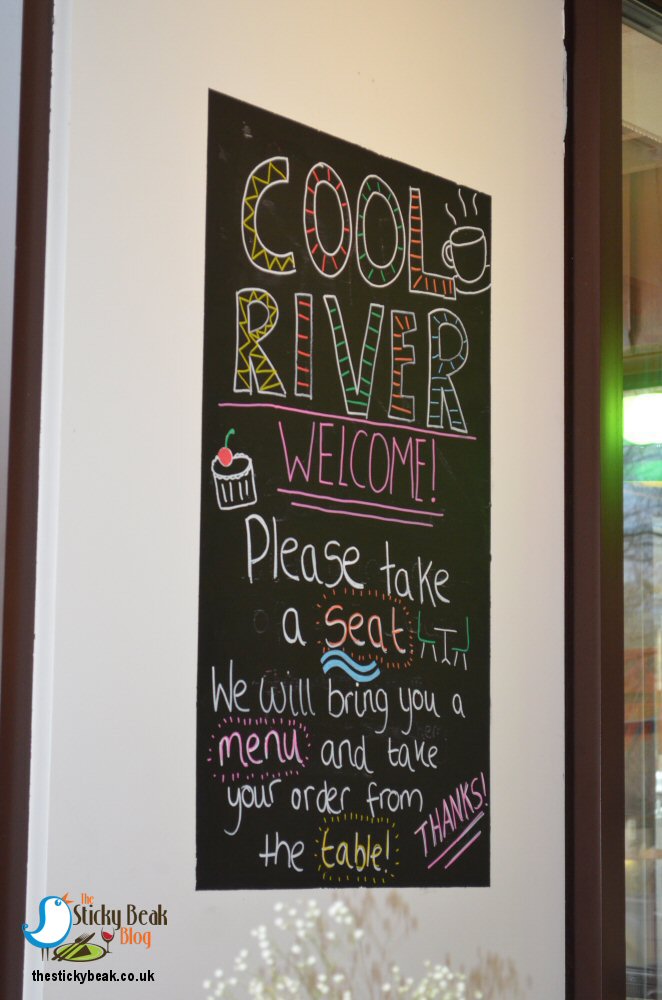 COOL
RIVER
WELCOME!
Please take
a seat
We will bring you a
menu and take
your order from
the table!
THANKS!
The
Sticky Beak
Blog
thestickybeak.co.uk